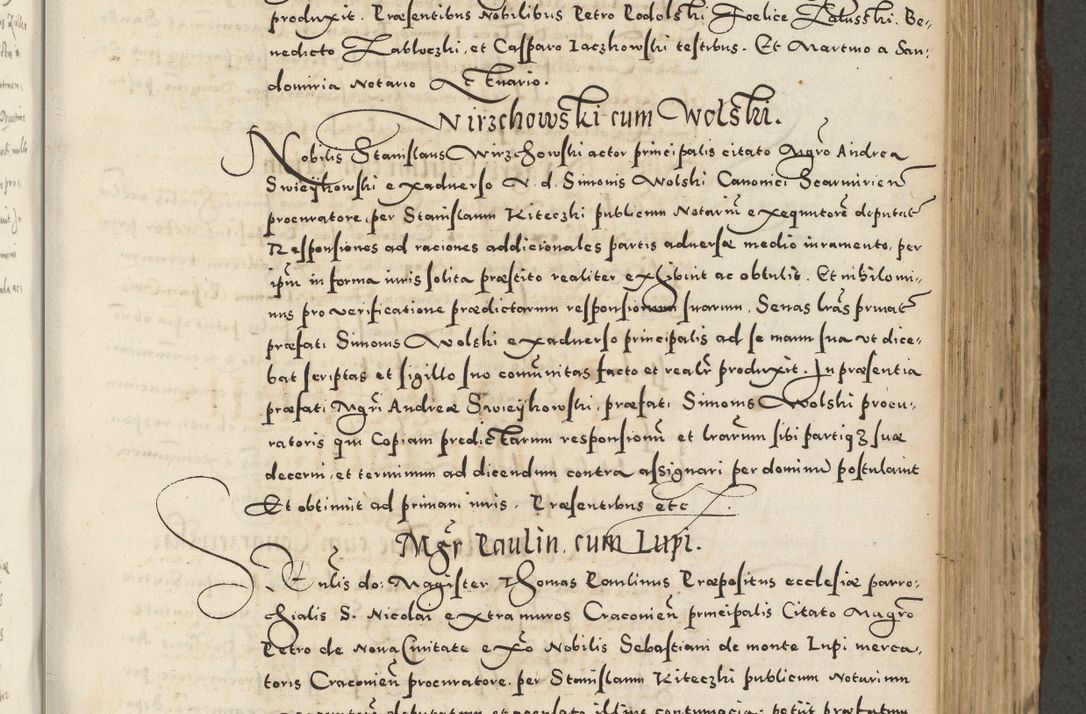 produxit. Præsentibus Nobilibus Petro Rodolski Foelice Zalusski. Be-
nedicto Zabluczki, et Casparo Iaczkowski testibus. Et Martino a San-
domiria Notario Actuario.
Nirzchowski cum Wolski.
Nobilis Stanislaus Wirzchowski actor principalis citato Mgro Andrea
Swieykowski ex adverso V. d. Simonis Wolski Canonici Scarmirien
procuratore, per Stanislaum Kiteczki publicum Notariu exequutore deputat
Responsiones ad raciones addicionales partis adversæ medio iuramento, per
ipm in forma iuris solita præstito realiter exhibuit ac obtulit. Et nihilomi-
nus pro verificatione prædictarum responsionum suarum, Senas lras privat
præfati Simonis Wolski ex adverso principalis ad se manu sua ut dice-
bat scriptas et sigillo suo comunitas facto et realr produxit. In præsentia
præfati Mgri Andreæ Swieykowski, præfati Simonis Wolski procu-
ratoris qui Copiam predictarum responsionu et lrarum sibi partiq3 suæ
decerni, et terminum ad dicendum contra assignari per dominu postulavit
Et obtinuit ad primam iuris. Præsentibus etc
Mgr Paulin. cum Lupi.
do: Magister Thomas Paulinus Præpositus ecclesiæ parro-
chialis S. Nicolai extra muros Cracovien principalis Citato Magro
Petro de Nova Civitate exo Nobilis Sebastiani de monte Lupi merca-
toris Cracovien procuratore, per Stanislaum Kiteczki publicum Notarium
deputatum contumacia: petiit præfatum